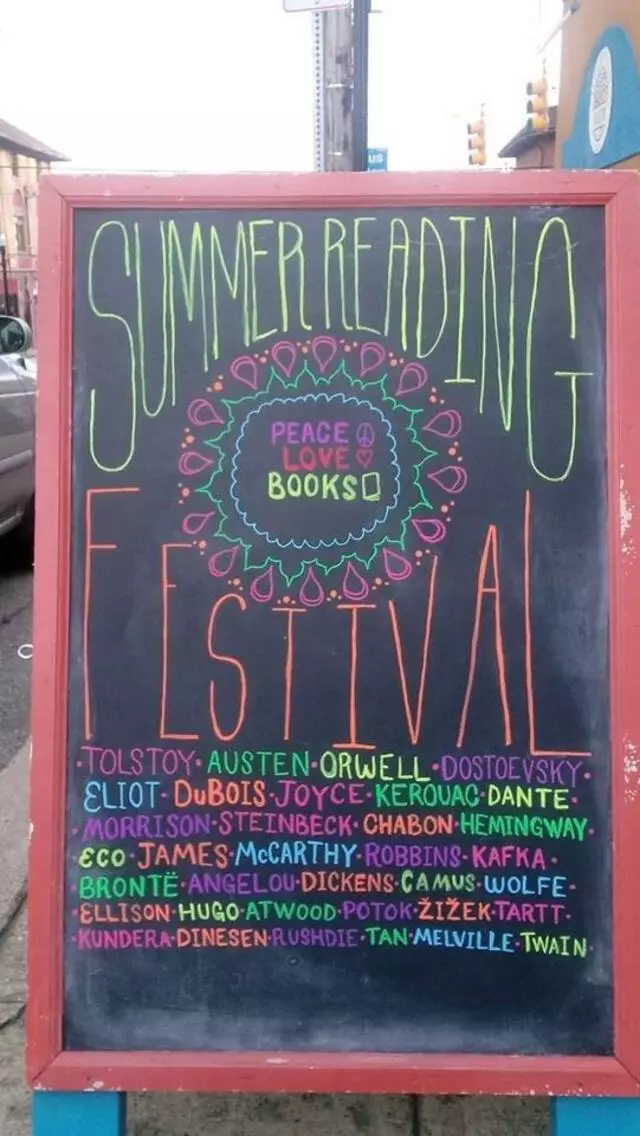 US
SUMMER READING
PEACE
LOVE
BOOKS
FESTIVAL
·TOLSTOY·AUSTEN·ORWELL·DOSTOEVSKY·
ELIOT·DUBOIS·JOYCE·KEROUAC·DANTE·
·MORRISON·STEINBECK·CHABON·HEMINGWAY·
ECO·JAMES·McCARTHY·ROBBINS·KAFKA·
BRONTË·ANGELOU·DICKENS·CAMUS·WOLFE·
·ELLISON·HUGO·ATWOOD·POTOK·ŽIŽEK·TARTT·
·KUNDERA·DINESEN·RUSHDIE·TAN·MELVILLE·TWAIN·